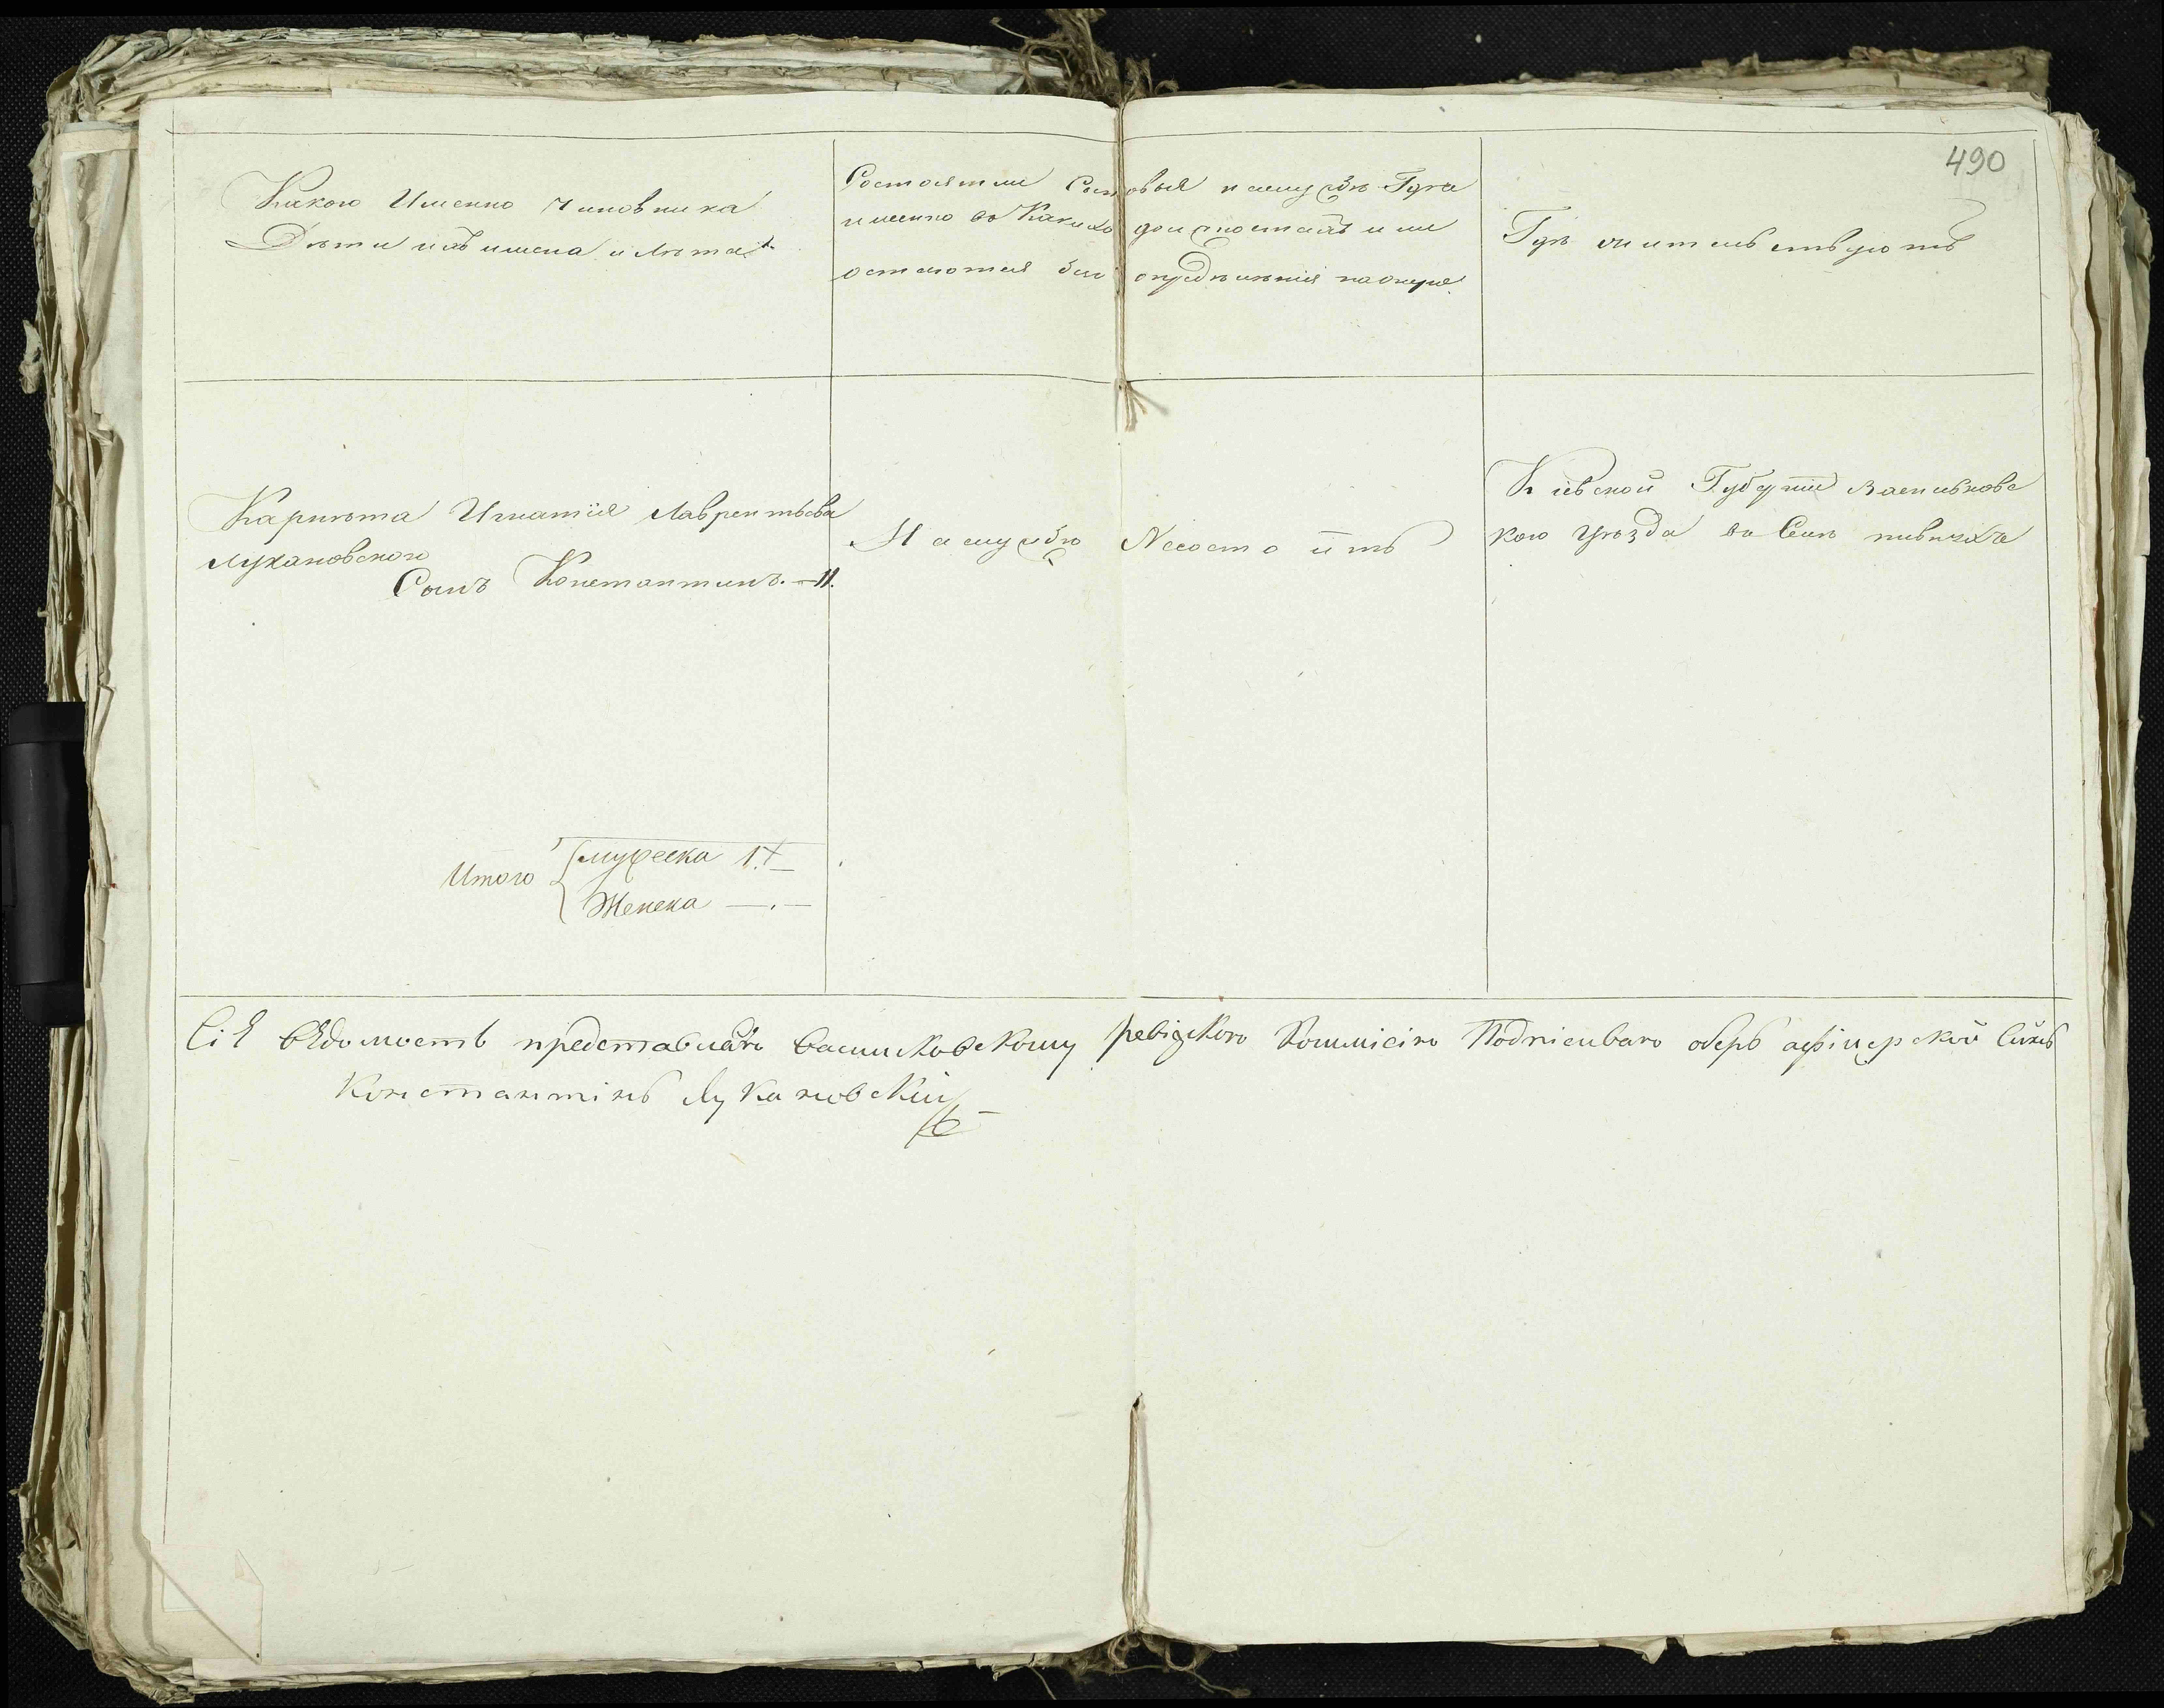 490
Какого Именно Чиновника
Дѣти ихъ имена и лѣта
Состоятъ ли Сыновья на службѣ Гдѣ
именно въ Какихъ должностяхъ или
остаются безъ опредѣленія
Гдѣ жительствуютъ
Карнета Игнатія Лаврентьева
Лукановского
Сынъ Константинъ. — 11.
На службѣ Несостоитъ
Кіевской Губерніи Васильковс
кого Уѣзда въ Селѣ
Итого { мужеска 1.
Женска — . —
Сіѣ вѣдомость представлялъ васильковскому ревизкого Коммисіи Подписивалъ оберъ афіцерской Синъ
Константінъ Лукановскій